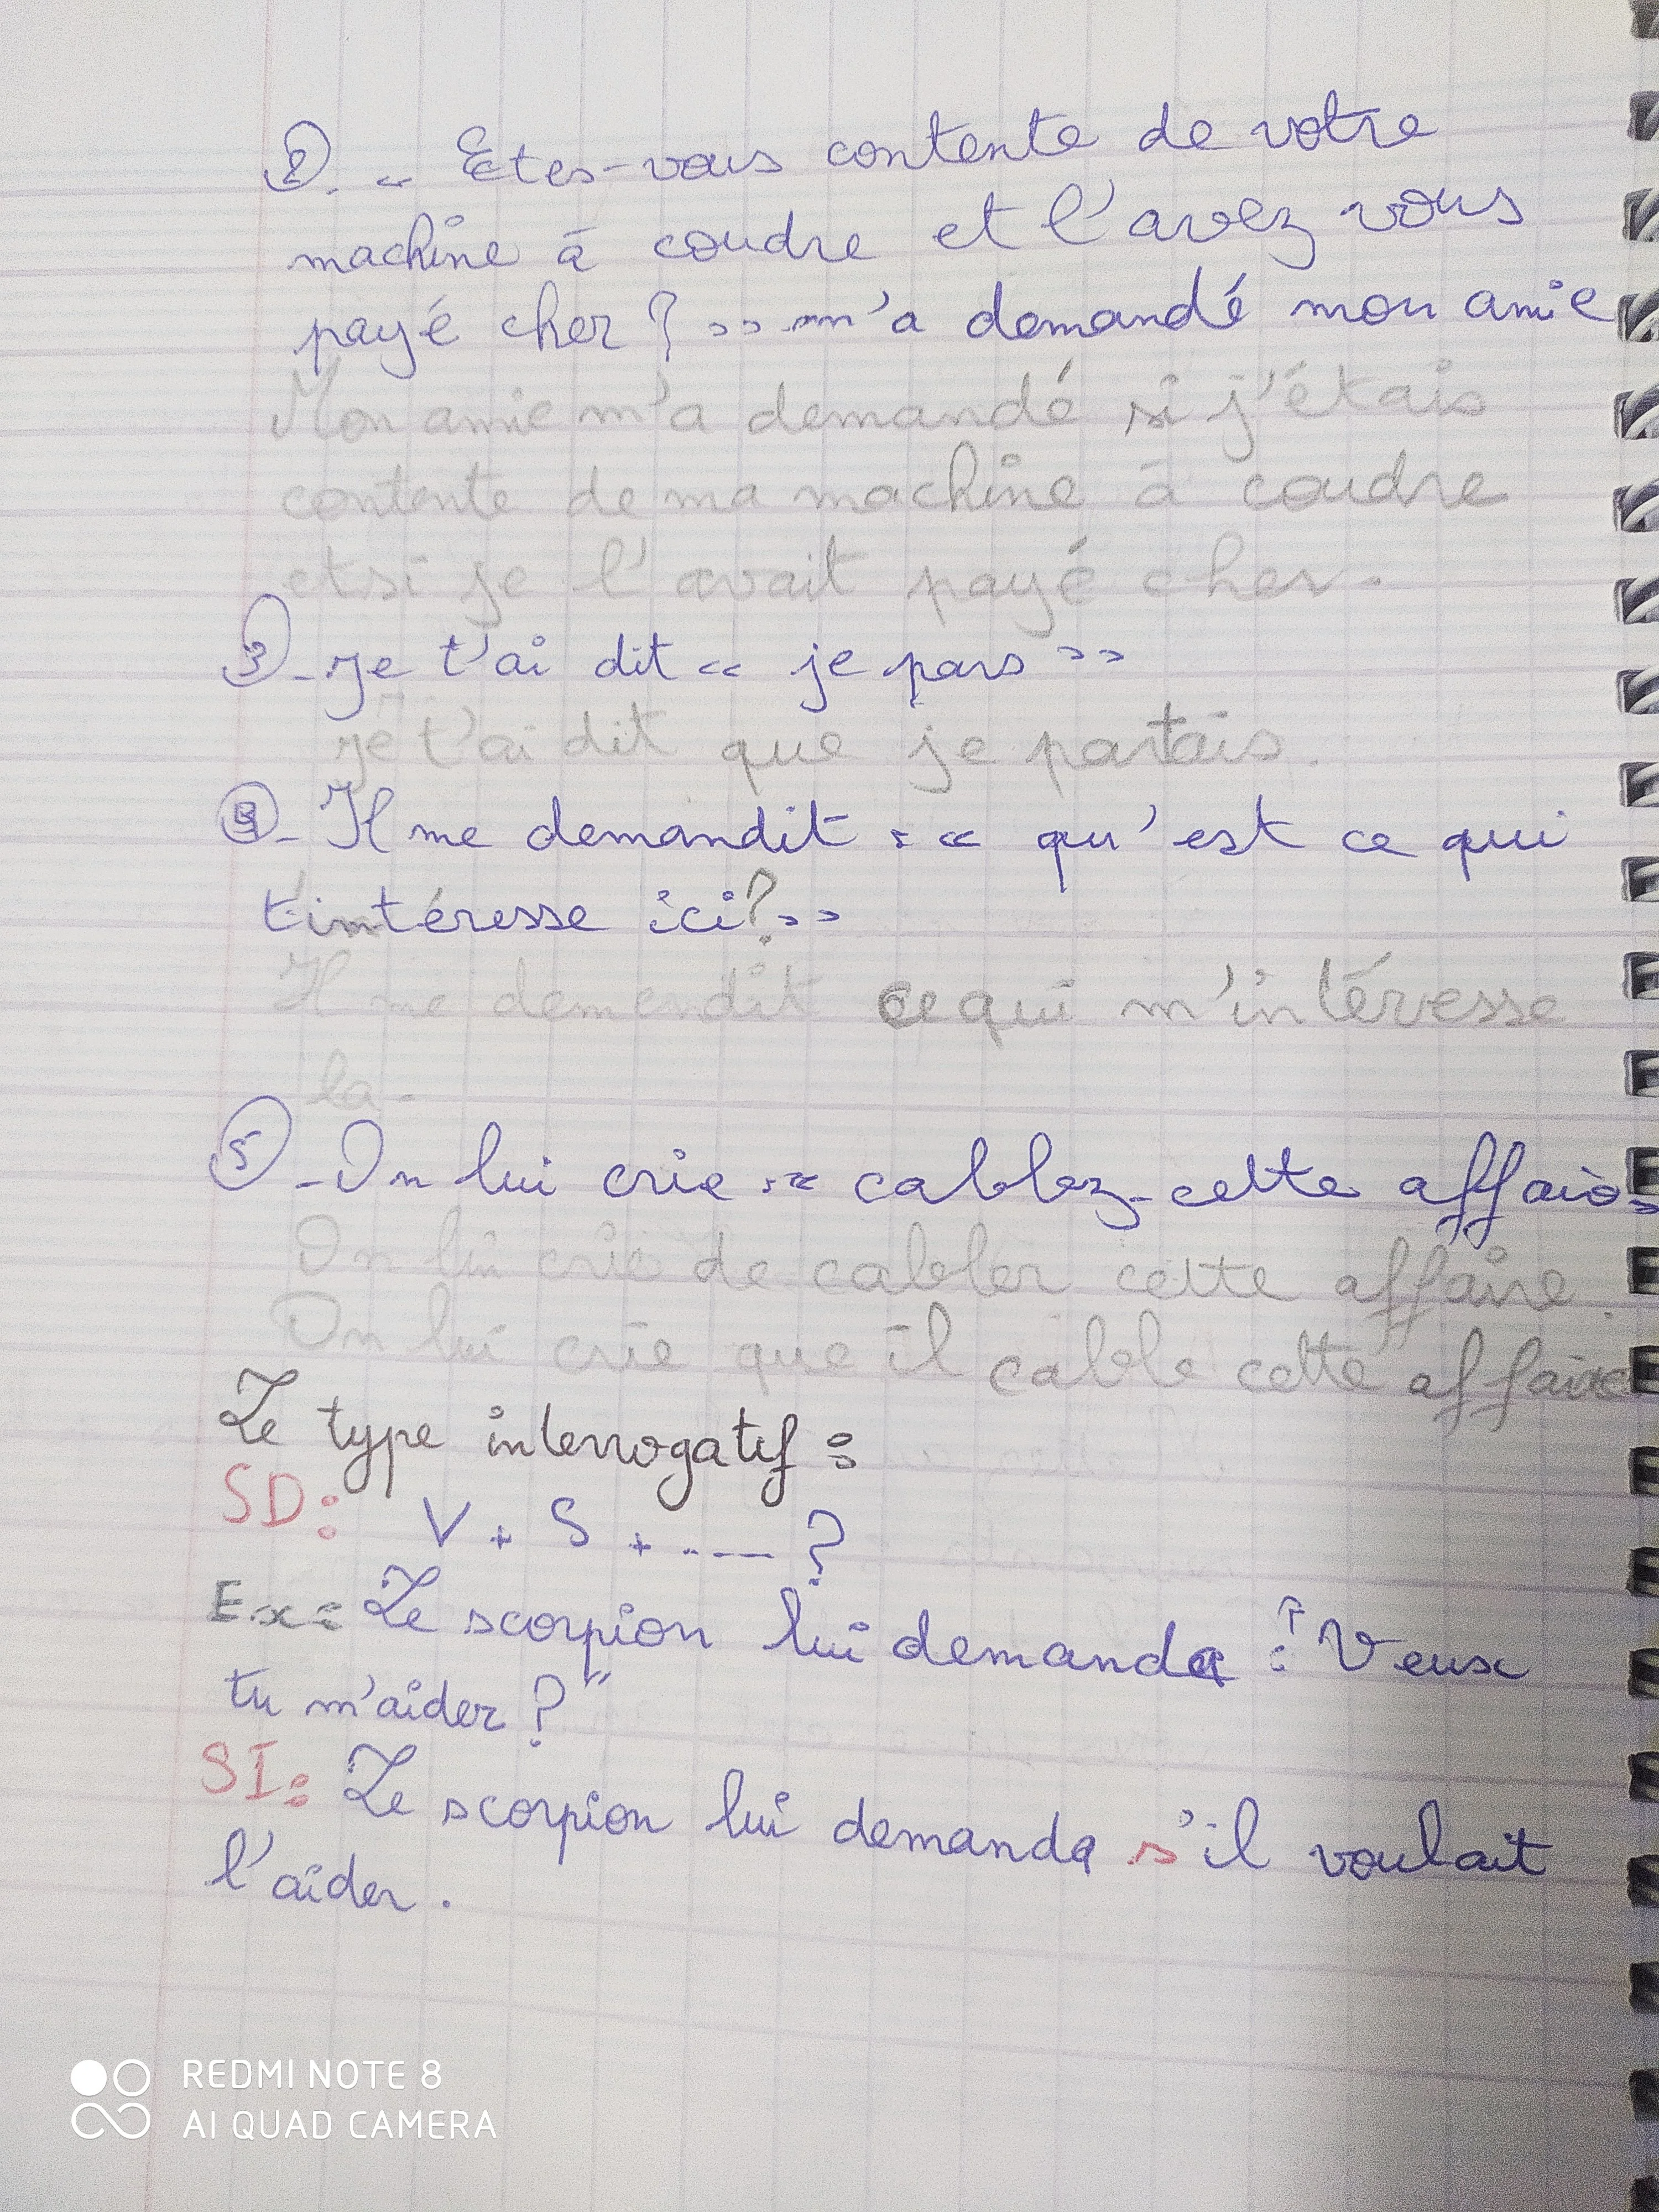 2. « Etes-vous contente de votre
machine à coudre et l'avez vous
payé cher ? » m'a demandé mon amie
Mon amie m'a demandé si j'étais
contente de ma machine à coudre
et si je l'avait payé cher.
3 - Je t'ai dit « je pars »
Je t'ai dit que je partais.
4 - Il me demandit : « qu'est ce qui
t'intéresse ici ? »
Il me demendit ce qui m'intéresse
la.
5 - On lui crie : « cablez-cette affaire
On lui crie de cabler cette affaire.
On lui crie que il cable cette affaire
Le type interrogatif :
SD : V + S + ... ?
Ex : Le scorpion lui demanda : "Veux
tu m'aider ?"
SI : Le scorpion lui demanda s'il voulait
l'aider.
REDMI NOTE 8
AI QUAD CAMERA